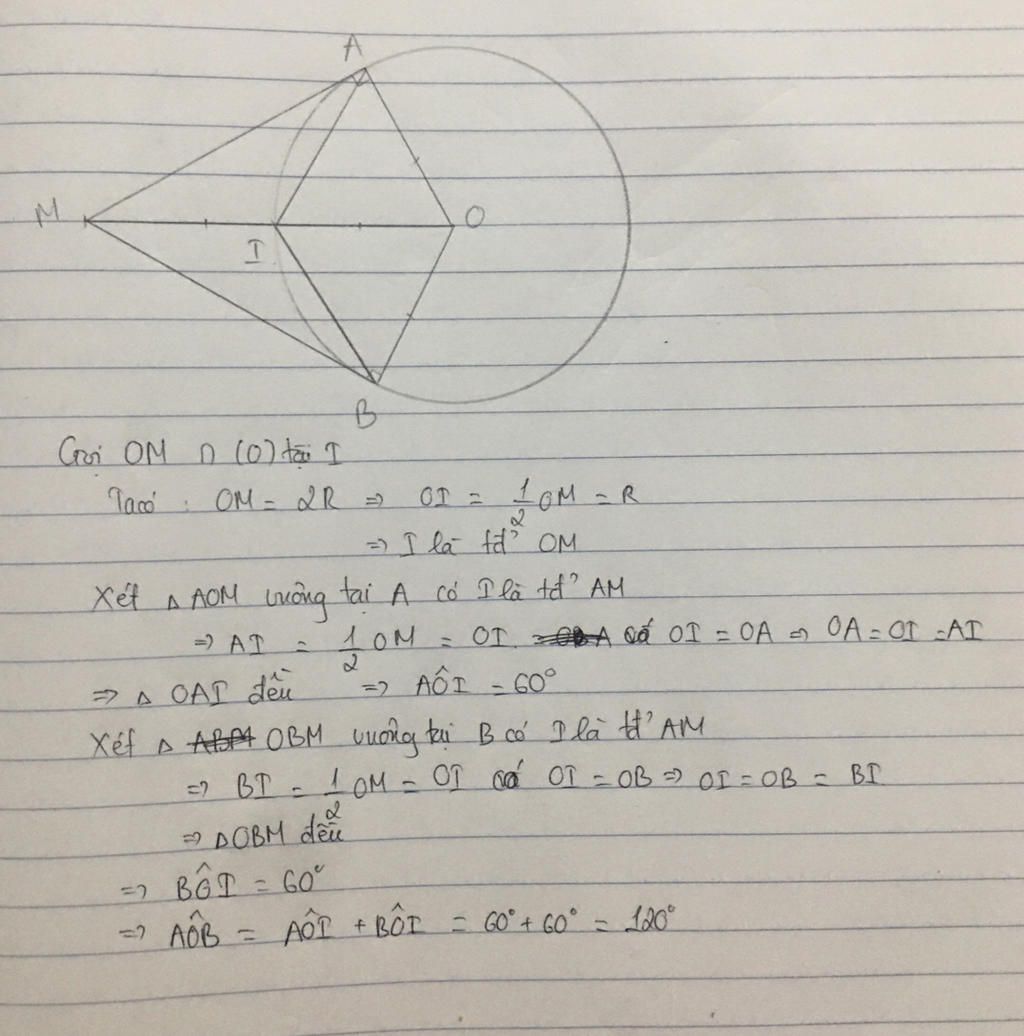 A
M
O
I
B
Gọi OM ∩ (O) tại I
Ta có : OM = 2R => OI = 1/2 OM = R
=> I là tđ' OM
Xét △ AOM vuông tại A có I là tđ' AM
=> AI = 1/2 OM = OI. có OI = OA => OA = OI = AI
=> △ OAI đều => AÔI = 60°
Xét △ ABM OBM vuông tại B có I là tđ' AM
=> BI = 1/2 OM = OI có OI = OB => OI = OB = BI
=> △OBM đều
=> BÔI = 60°
=> AÔB = AÔI + BÔI = 60° + 60° = 120°